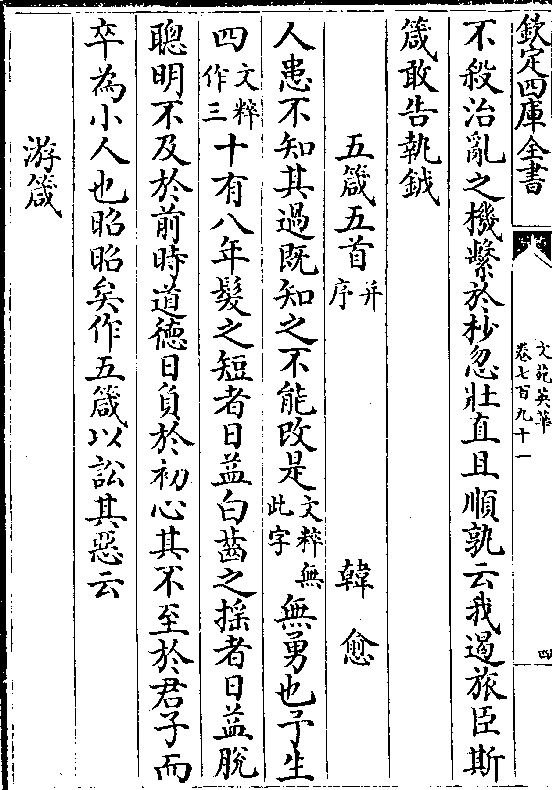 欽定四庫全書
文苑英華
卷七百九十一
四
不殺治亂之機繫於杪忽壯直且順孰云我遏旅臣斯
箴敢告執鉞
五箴五首并序 韓愈
人患不知其過既知之不能改是文粹無此字無勇也予生
四文粹作三十有八年髮之短者日益白齒之揺者日益脫
聰明不及於前時道德日負於初心其不至於君子而
卒為小人也昭昭矣作五箴以訟其惡云
游箴